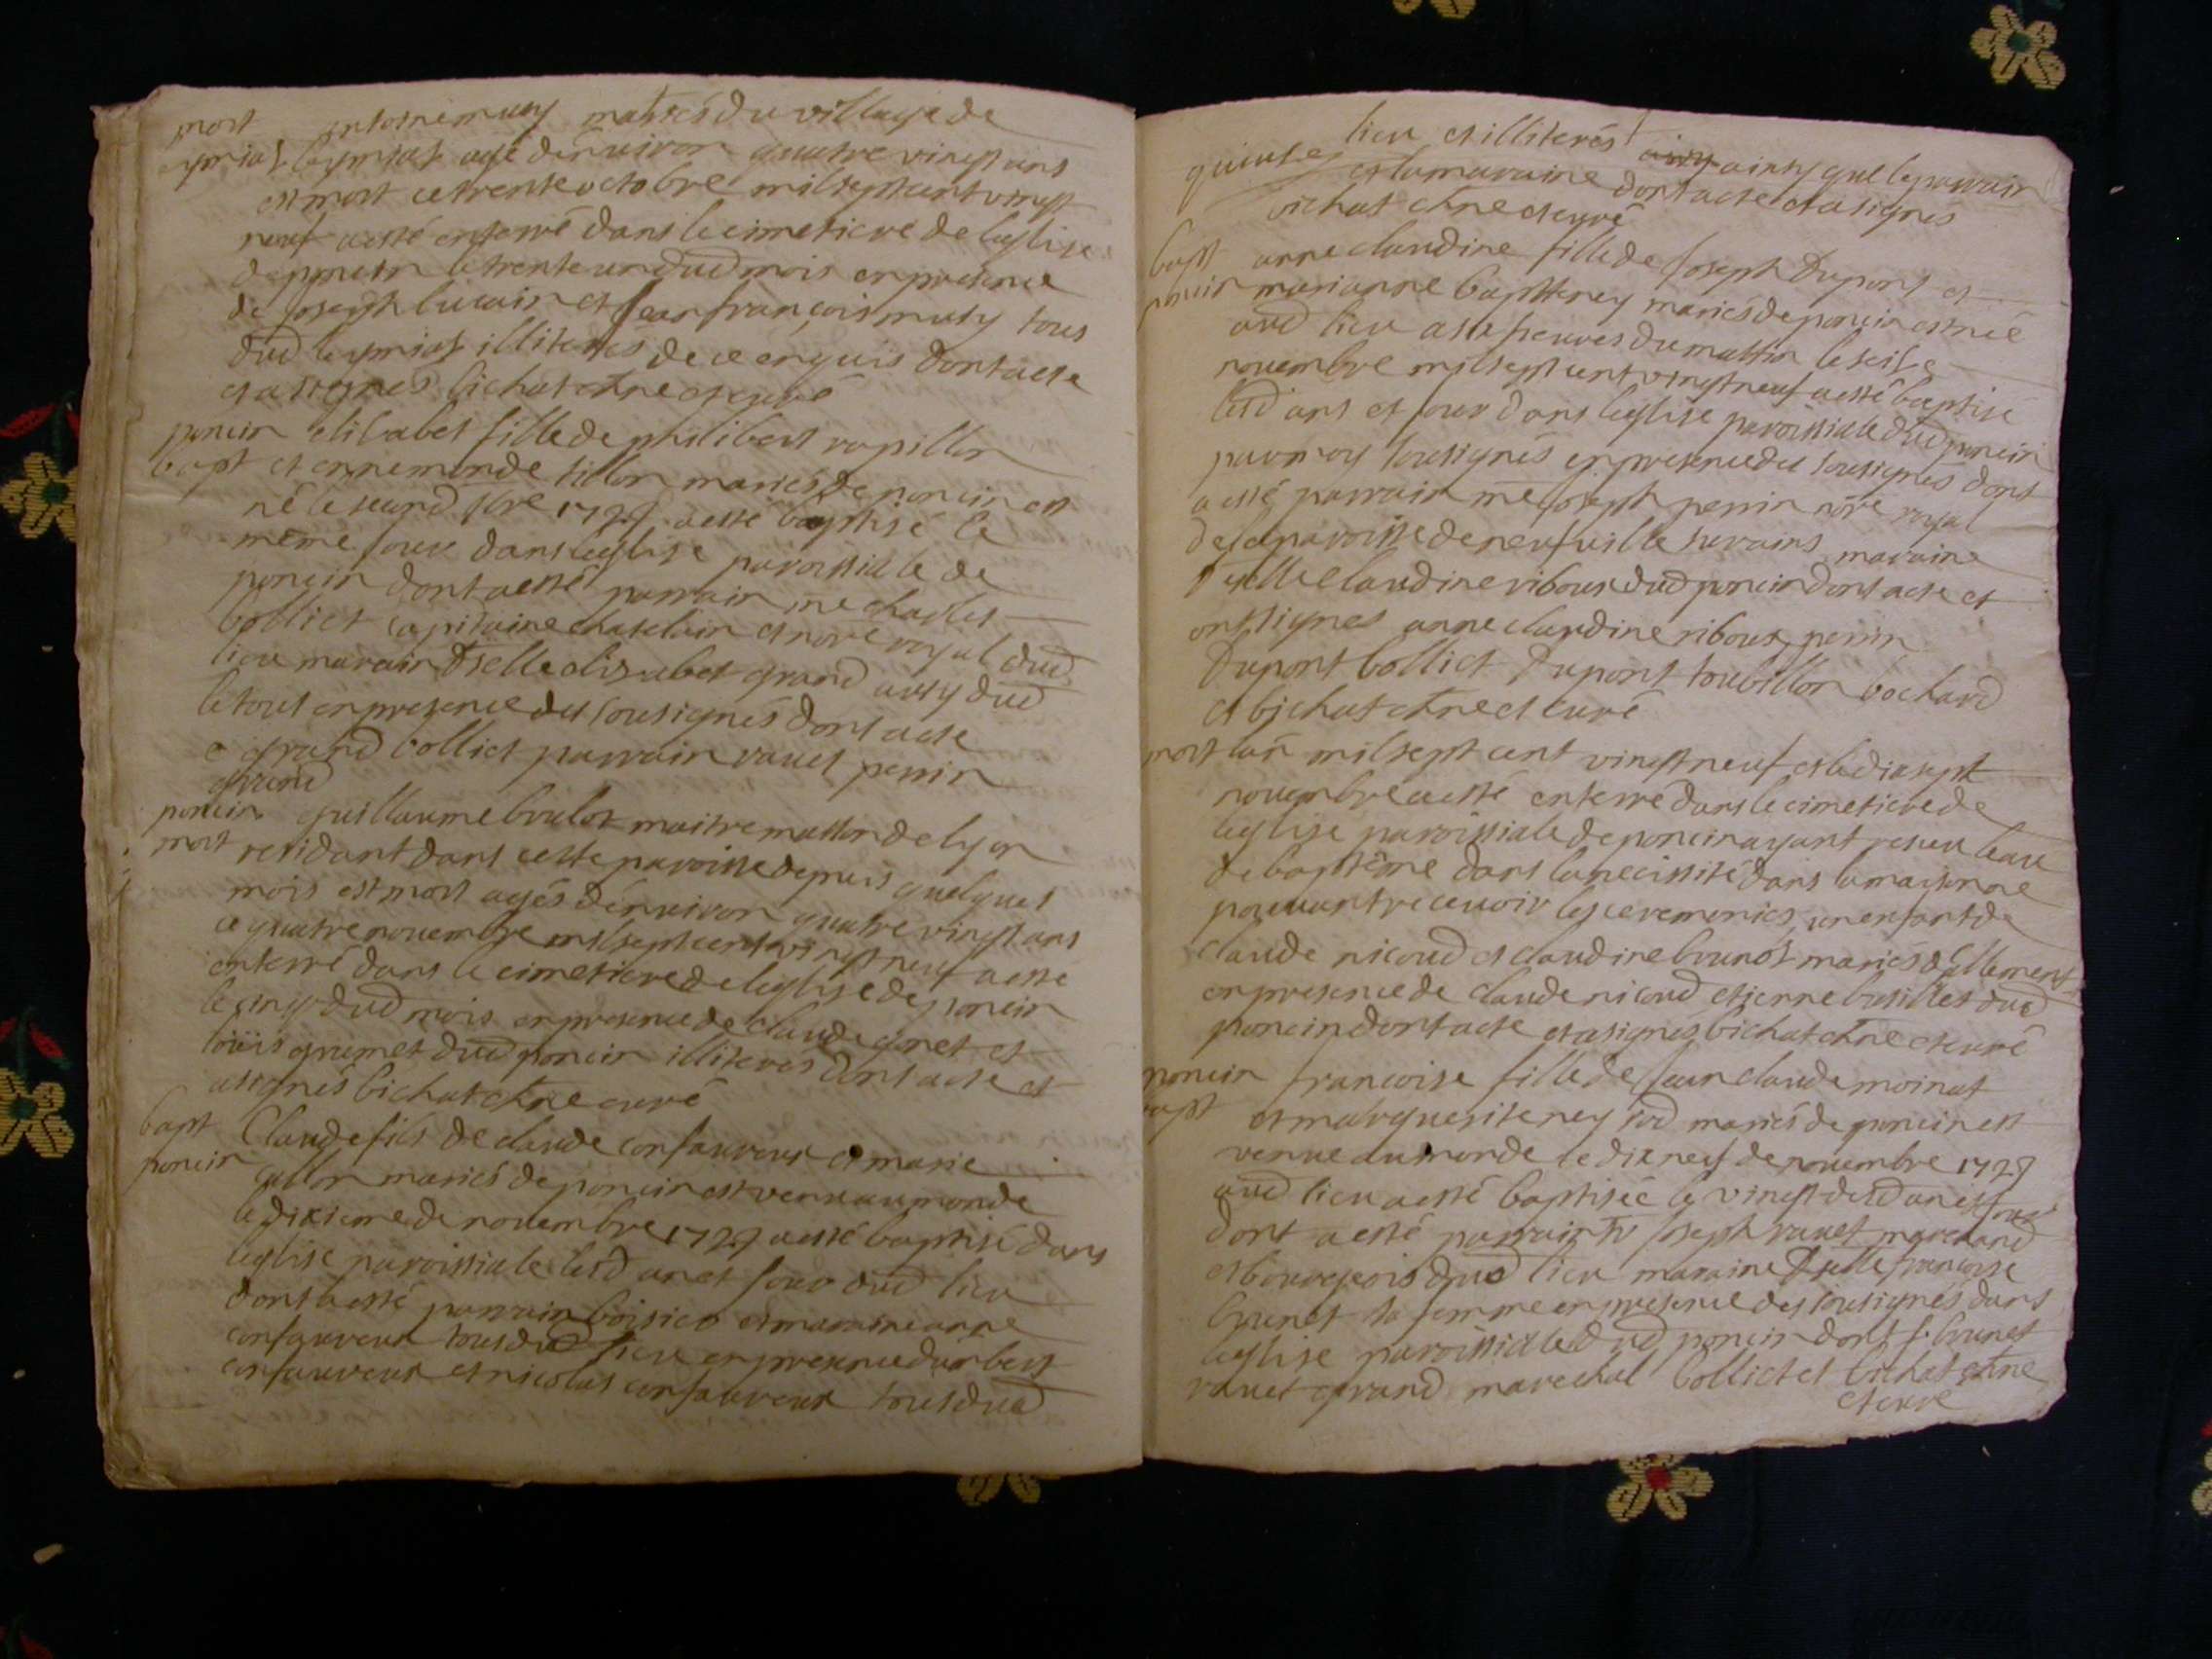 mort antoinemusy mariés du village de
leymiat aagé denviron quatre vingt ans
est mort ce trente octobre mil sept cent vingt
neuf a esté enterré dans le cimetiere de leglise
de poncin le trente un dud mois en presence
de joseph lucain et jean françois musy tous
dud leymiat illiterés de ce enquis dont acte
et a signés bichat chne et curé
poncin elisabet fille de philibert rapillon
bapt et ennemonde tillon mariés de poncin est
né le second 9bre 1729 a esté baptisé le
même jour dans leglise paroissiale de
poncin dont a esté parrain me charles
bolliet capitaine chatelain et nore royal dud
lieu marain dselle elizabet grand aussy dud
le tout en presence des sousignés dont acte
e grand bolliet parrain ravet perrin
grand
poncin guillaume brulot maitre masson de lyon
mort residant dans cette paroisse depuis quelques
mois est mort agés denviron quatre vingt ans
ce quatre novembre mil sept cent vingt neuf a esté
enterré dans le cimetiere de leglise de poncin
le cinq dud mois en presence de claude genet et
loüis grumet dud poncin illiteres dont acte et
a signés bichat chne curé
bapt Claude fils de claude confavreux et marie
poncin mariés de poncin est venu au monde
le dixieme de novembre 1729 a esté baptisé dans
leglise paroissiale lesd an et jour dud lieu
dont a esté parrain et maraine anne
confavreux tous dud lieu en presence dimbert
confavreux et nicolas confavreux tous dud
lieu et illiterés ainsy que le parrain
et la maraine dont acte et a signés
bichat chne et curé
bapt anne claudine fille de joseph Dupont et
poncin marianne baptterey mariés de poncin est née
aud lieu a six heures du mattin le seize
novembre mil sept cent vingt neuf a esté baptisé
lesd ans et jour dans leglise paroissiale dud poncin
par moy sousignés en presence des sousignés dont
a esté parrain me joseph perrin nore royal
de la paroisse de neufville sur ains maraine
dselle claudine riboux dud poncin dont acte et
ont signes anne claudine riboux perrin
Dupont bolliet Dupont bochard
et bichat chne et curé
mort lan mil sept cent vingt neuf et le dix sept
novembre a esté enterré dans le cimetiere de
leglise paroissiale de poncin ayant receu leau
de baptême dans la necissité dans la maison ne
pouvant recevoir les ceremonies un enfant de
claude nicoud et claudine brunot mariés dallement
en presence de claude nicoud et dud
poncin dont acte et a signés bichat chne et curé
poncin francoise fille de jean claude moinat
bapt et marguerite rey sud mariés de poncin est
venue au monde le dix neuf de novembre 1729
aud lieu a esté baptisée le vingt desd an et jour
dont a esté parrain sr joseph ravet marchand
et bourgeois dud lieu maraine dselle francoise
brunet sa femme en presence des sousignés dans
leglise paroissiale dud poncin dont f. brunet
ravet grand marechal bolliet et bichat chne
et curé